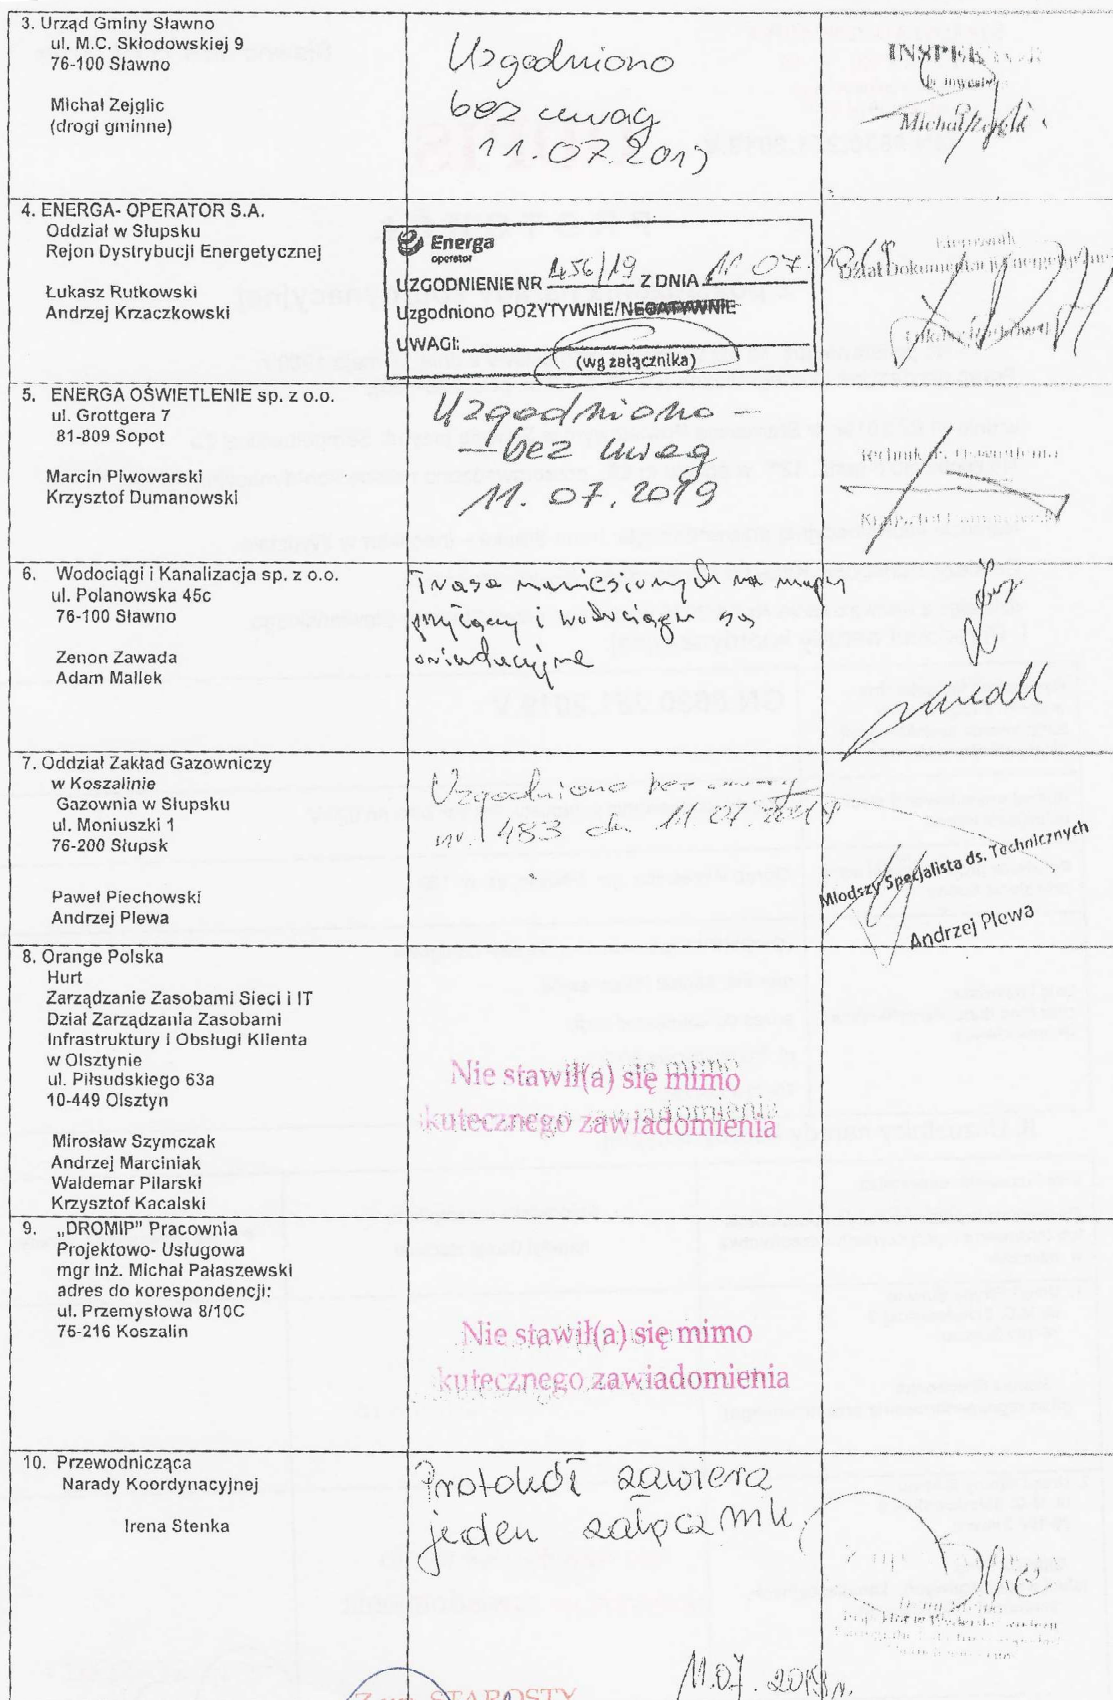 3. Urząd Gminy Sławno
ul. M.C. Skłodowskiej 9
76-100 Sławno
Michał Zejglic
(drogi gminne)
Uzgodniono
bez uwag
11.07.2019
INSPEKTOR
Michał Zejglic
4. ENERGA- OPERATOR S.A.
Oddział w Słupsku
Rejon Dystrybucji Energetycznej
Łukasz Rutkowski
Andrzej Krzaczkowski
Energa
operator
UZGODNIENIE NR 456/19 Z DNIA 11.07.
Uzgodniono POZYTYWNIE/NEGATYWNIE
UWAGI:
(wg załącznika)
Kierownik
Dział Dokumentacji Energetycznej
Łukasz Rutkowski
5. ENERGA OŚWIETLENIE sp. z o.o.
ul. Grottgera 7
81-809 Sopot
Marcin Piwowarski
Krzysztof Dumanowski
Uzgodniono -
- bez uwag
11.07.2019
Technik ds. Oświetlenia
Krzysztof Dumanowski
6. Wodociągi i Kanalizacja sp. z o.o.
ul. Polanowska 45c
76-100 Sławno
Zenon Zawada
Adam Mallek
Trasa naniesionych na mapy
przyłączy i wodociągu są
orientacyjne
7. Oddział Zakład Gazowniczy
w Koszalinie
Gazownia w Słupsku
ul. Moniuszki 1
76-200 Słupsk
Paweł Piechowski
Andrzej Plewa
Uzgodniono bez uwag
nr. 483 dn 11.07.2019
Młodszy Specjalista ds. Technicznych
Andrzej Plewa
8. Orange Polska
Hurt
Zarządzanie Zasobami Sieci i IT
Dział Zarządzania Zasobami
Infrastruktury i Obsługi Klienta
w Olsztynie
ul. Piłsudskiego 63a
10-449 Olsztyn
Mirosław Szymczak
Andrzej Marciniak
Waldemar Pilarski
Krzysztof Kacalski
Nie stawił(a) się mimo
skutecznego zawiadomienia
9. „DROMIP" Pracownia
Projektowo- Usługowa
mgr inż. Michał Pałaszewski
adres do korespondencji:
ul. Przemysłowa 8/10C
75-216 Koszalin
Nie stawił(a) się mimo
skutecznego zawiadomienia
10. Przewodnicząca
Narady Koordynacyjnej
Irena Stenka
Protokół zawiera
jeden załącznik.
11.07.2019r.
Z up. STAROSTY